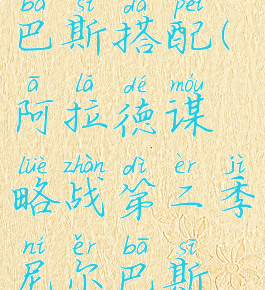 bā sī dā pèi
巴斯搭配(
ā lā dé móu
阿拉德谋
lüè zhàn dì èr jì
略战第二季
ní ěr bā sī
尼尔巴斯